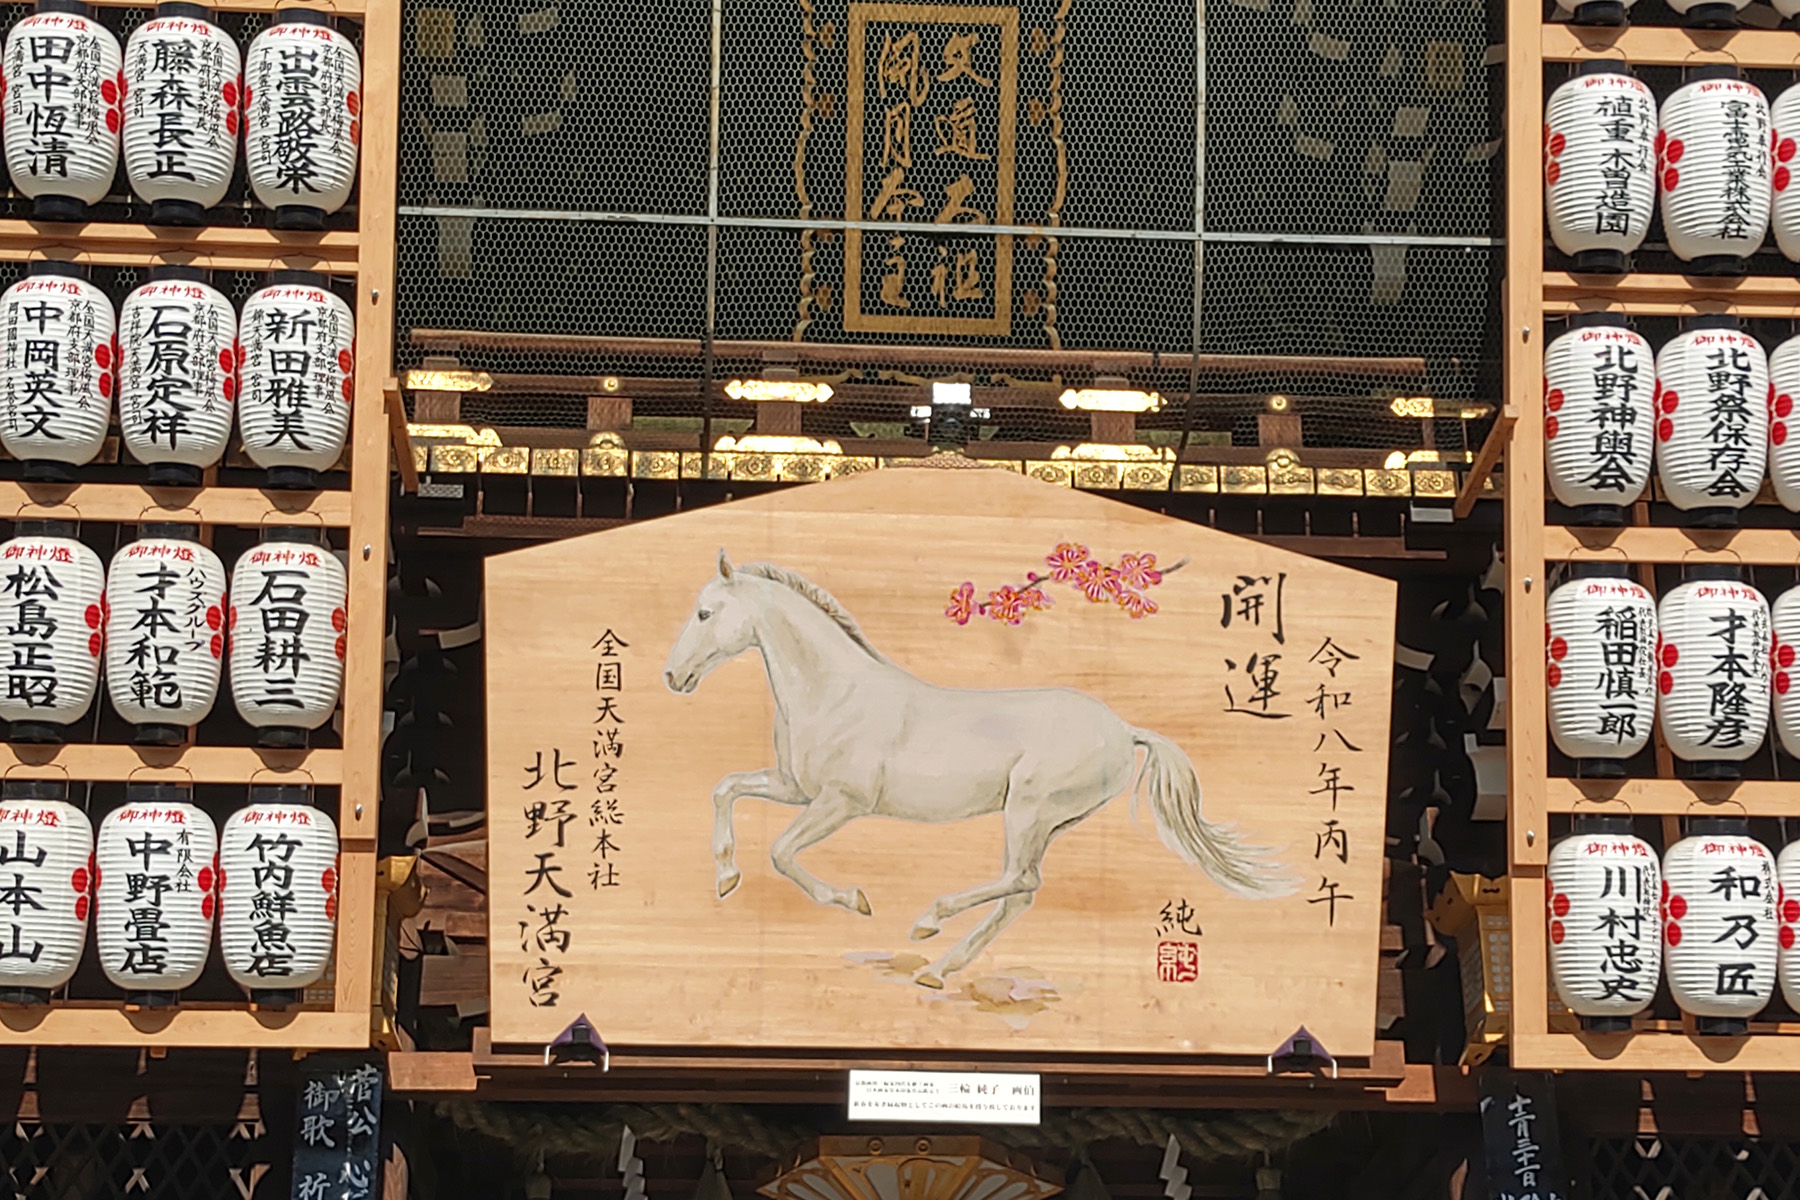 文道大祖
風月本主
開運
令和八年丙午
純
全国天満宮総本社
北野天満宮
三輪 純子 画伯
御神燈
全国天満宮梅風会
京都府支部長
下御霊天満宮 宮司
出雲路敬栄
御神燈
全国天満宮梅風会
京都府副支部長
天満宮 宮司
藤森長正
御神燈
全国天満宮梅風会
京都府支部理事
天満宮 宮司
田中恆清
御神燈
全国天満宮梅風会
京都府支部理事
錦天満宮 宮司
新田雅美
御神燈
全国天満宮梅風会
京都府支部理事
吉祥院天満宮 宮司
石原定祥
御神燈
全国天満宮梅風会
京都府支部理事
岡田國神社 名誉宮司
中岡英文
御神燈
石田耕三
御神燈
ハウスグループ
才本和範
御神燈
松島正昭
御神燈
竹内鮮魚店
御神燈
有限会社
中野畳店
御神燈
山本山
御神燈
北野奉行会
富士電気工業株式会社
御神燈
北野奉行会
植重 木曽造園
御神燈
北野祭保存会
御神燈
北野神輿会
御神燈
才本隆彦
御神燈
稲田慎一郎
御神燈
株式会社
和乃匠
御神燈
川村忠史
菅公
御歌
心だ
祈